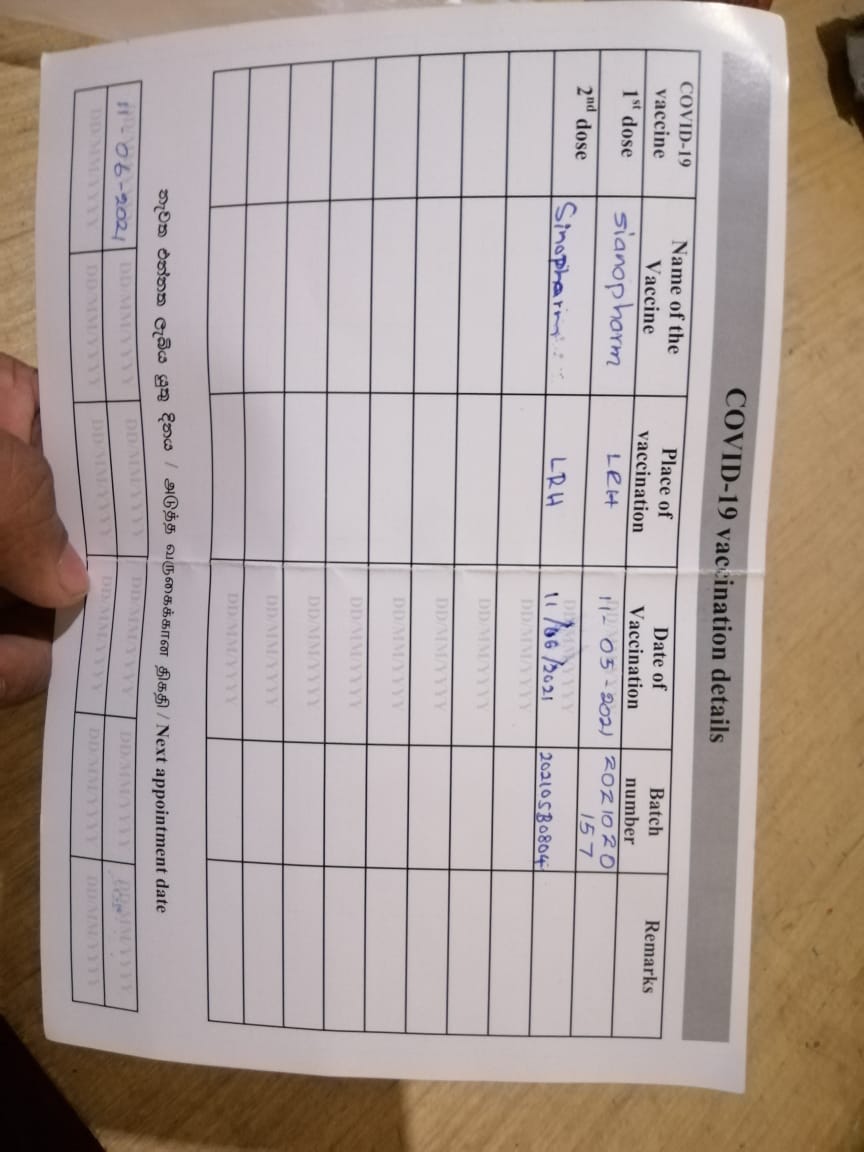 COVID-19 vaccination details
COVID-19 vaccine Name of the Vaccine Place of vaccination Date of Vaccination Batch number Remarks
1st dose sianopharm LRH 11-05-2021 2021020157
2nd dose Sinopharm LRH DD/MM/YYYY 11/06/2021 202105B0804
DD/MM/YYYY
DD/MM/YYYY
DD/MM/YYYY
DD/MM/YYYY
DD/MM/YYYY
DD/MM/YYYY
DD/MM/YYYY
DD/MM/YYYY
නැවත එන්නත ලැබිය යුතු දිනය / அடுத்த வருகைக்கான திகதி / Next appointment date
11-06-2021 DD/MM/YYYY DD/MM/YYYY DD/MM/YYYY DD/MM/YYYY DD/MM/YYYY
DD/MM/YYYY DD/MM/YYYY DD/MM/YYYY DD/MM/YYYY DD/MM/YYYY DD/MM/YYYY